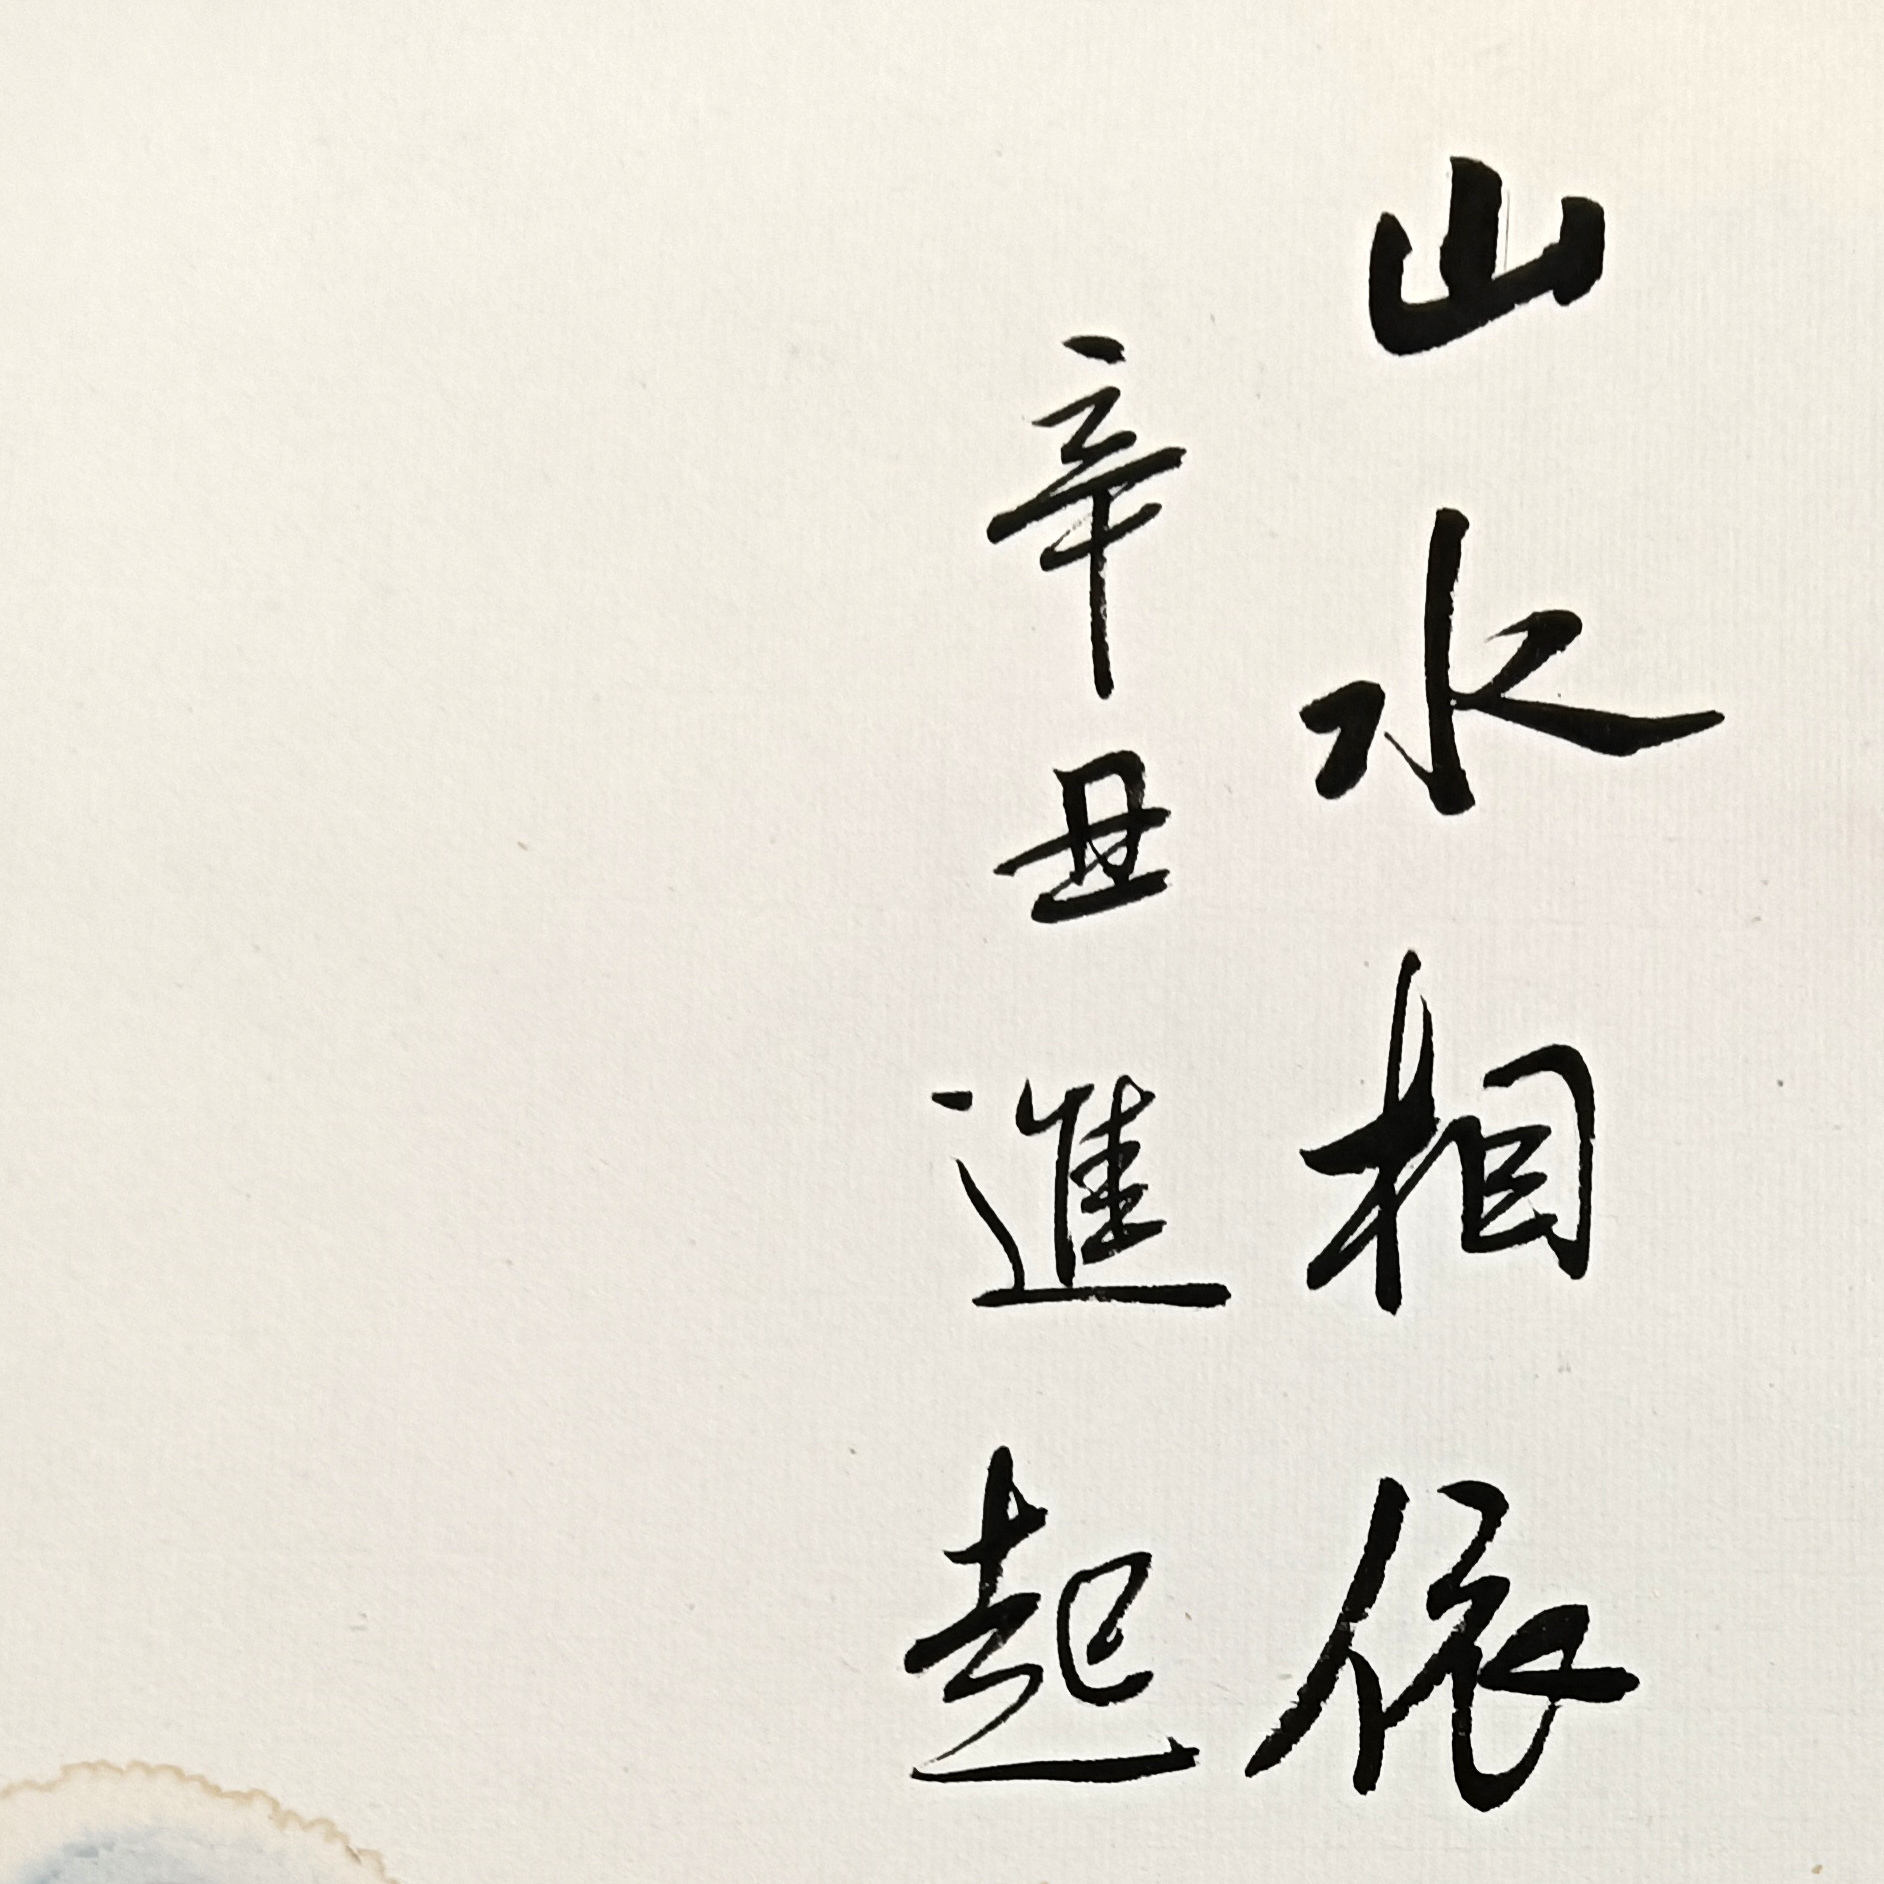 山水相依
辛丑進起